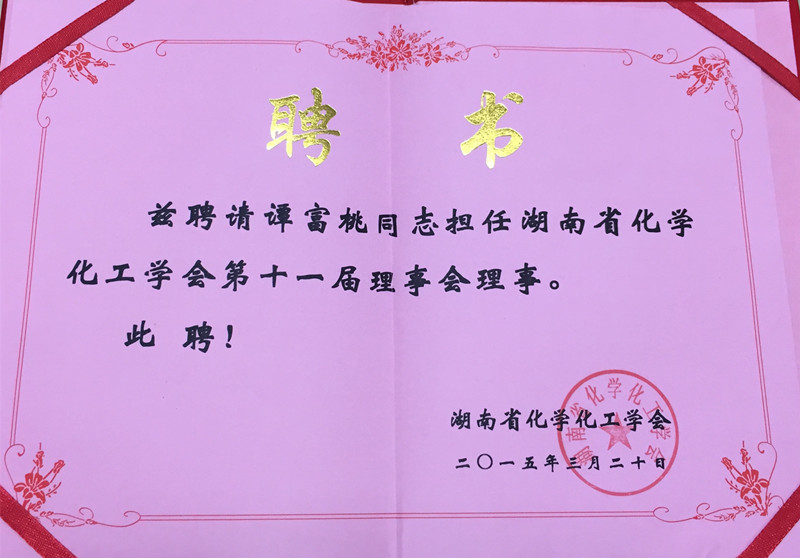 聘 书
兹聘请谭富桃同志担任湖南省化学
化工学会第十一届理事会理事。
此 聘！
湖南省化学化工学会
二〇一五年三月二十日
湖南省化学化工学会